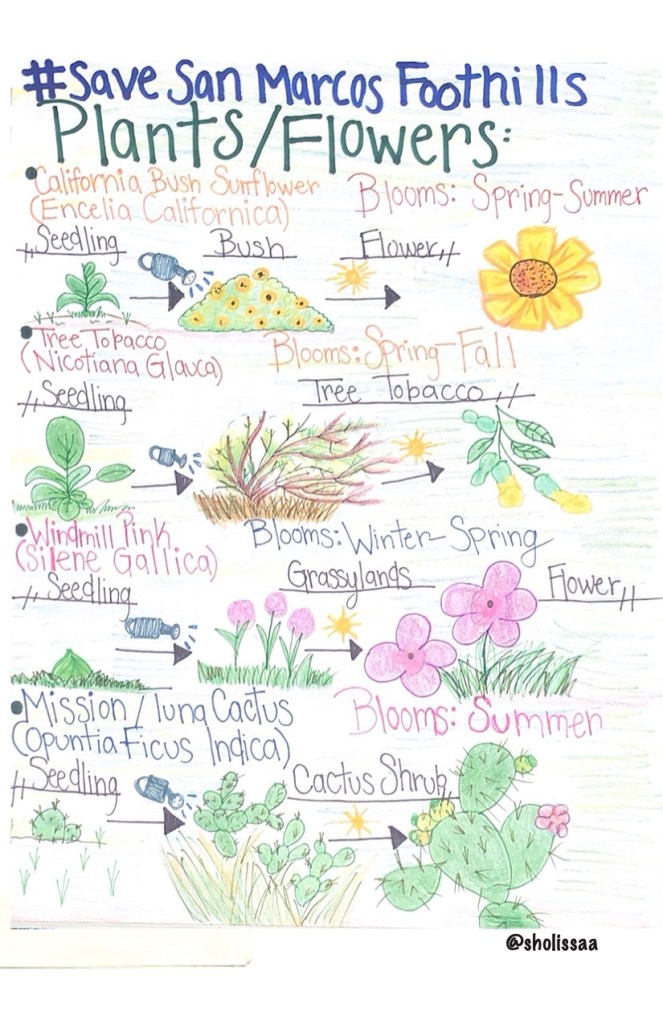 #Save San Marcos Foothills
Plants/Flowers:
•California Bush Sunflower
(Encelia Californica)
Blooms: Spring-Summer
Seedling
Bush
Flower
•Tree Tobacco
(Nicotiana Glauca)
Blooms: Spring-Fall
Seedling
Tree Tobacco
•Windmill Pink
(Silene Gallica)
Blooms: Winter-Spring
Seedling
Grassylands
Flower
•Mission/Tuna Cactus
(Opuntia Ficus Indica)
Blooms: Summer
Seedling
Cactus Shrub
@sholissaa